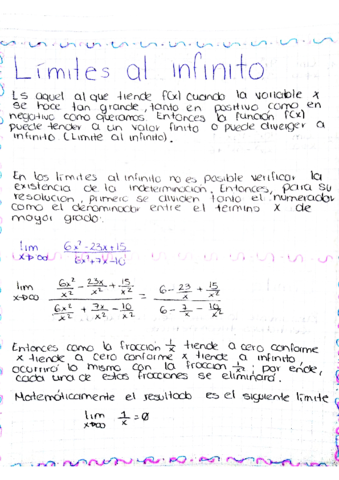 Límites al infinito
Es aquel al que tiende f(x) cuando la variable x
se hace tan grande, tanto en positivo como en
negativo como queramos. Entonces la función f(x)
puede tender a un valor finito o puede diverger a
infinito (Limite al infinito).
En los límites al infinito no es posible verificar la
existencia de la indeterminación. Entonces, para su
resolución, primero se dividen tanto el numerador
como el denominador entre el término x de
mayor grado.
lim x→∞ (6x² - 23x + 15)/(6x² + 7x - 10)
lim x→∞ (6x²/x² - 23x/x² + 15/x²)/(6x²/x² + 7x/x² - 10/x²) = (6 - 23/x + 15/x²)/(6 - 7/x - 10/x²)
Entonces como la fracción 1/x tiende a cero conforme
x tiende a cero conforme x tiende a infinito
ocurrirá lo mismo con la fracción 1/x²; por ende,
cada una de estas fracciones se eliminará.
Matemáticamente el resultado es el siguiente límite
lim x→∞ 1/x = 0